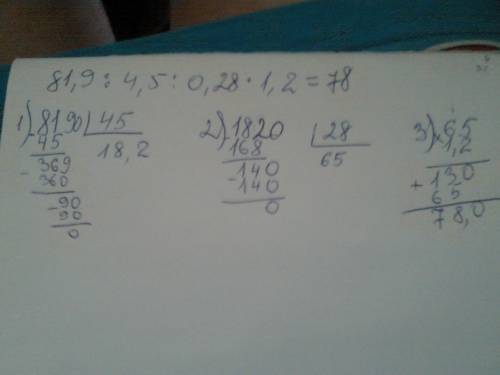 81,9 : 4,5 : 0,28 · 1,2 = 78
1) 8190 | 45
45 18,2
- 369
360
- 90
90
0
2) - 1820 | 28
168 65
- 140
140
0
3) × 65
1,2
+ 130
65
78,0